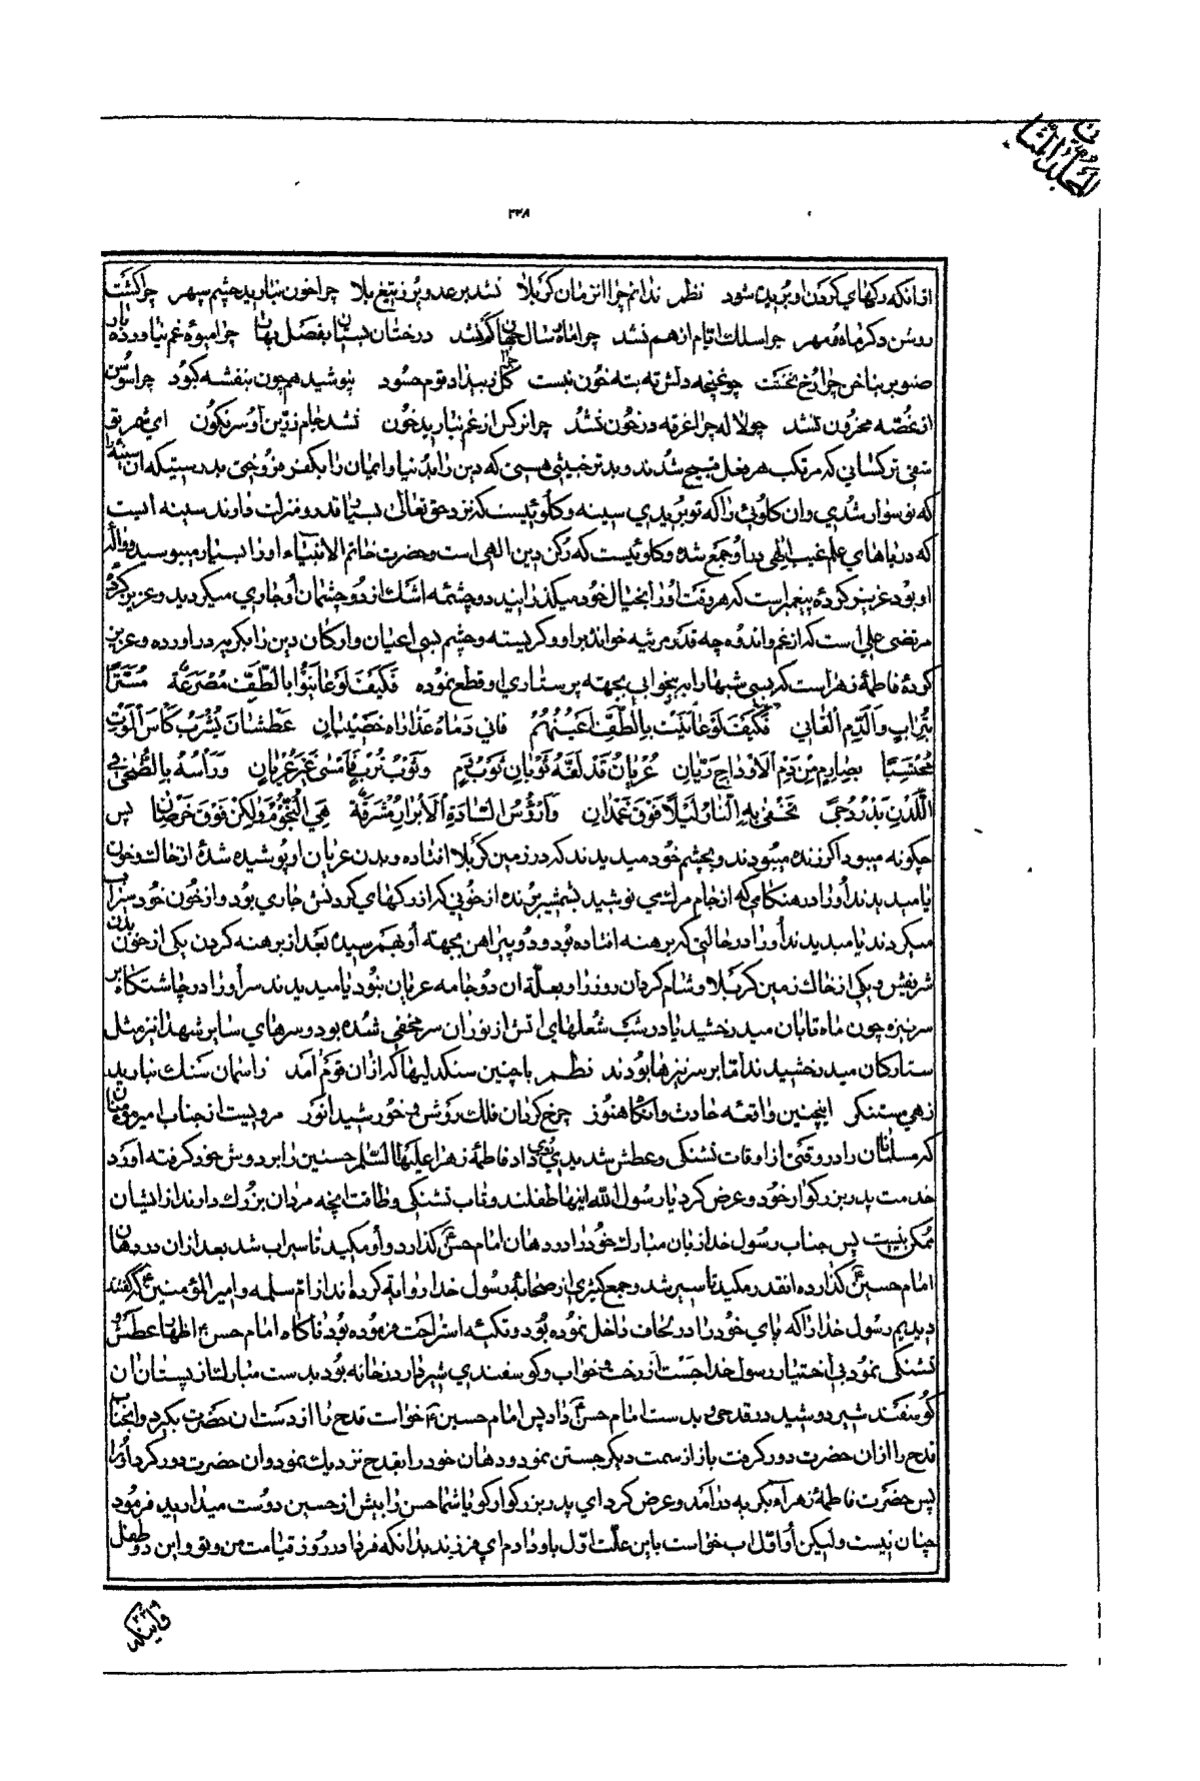 المجلد الثانی
۲۲۸
از انکه رکهای کردن او بریده شود نظم ندانم چرا انزمان کربلا نشد بر عدو پرز تیغ بلا چرا خون نبارید چشم سپهر چرا کشت
روشن دکر ماه و مهر چرا سلك ایام از هم نشد چرا ماه سال جهان کم نشد درختان بستان بفصل بهان چرا میوهٔ غم نیاورده بار
صنوبر بناخن چرا رخ نخست چو غنچه دلش ته بته خون نبست کل از بیداد قوم حسود نپوشید همچون بنفشه کبود چرا سوسن
از غصه محزون نشد چو لاله چرا غرقه در خون نشد چرا نرکس از غم نبارید خون نشد جام زرین او سرنکون ای شهر تو
شقی ترکسانی که مرتکب هر فعل قبیح شدند و بدتر خبیثی هستی که دین را بدنیا و ایمان را بکفر فروختی بدرستیکه ان سینه را
که تو سوار شدی و ان کلوئی را که تو بریدی سینه و کلوئیست که نزد حق تعالی بسیار قدر و منزلت دارند سینه ایست
که دریاهای علم غیب الهی در او جمع شده و کلوئیست که رکن دین الهی است و حضرت خاتم الانبیاء او را بسیار میبوسید و والد
او بود عزیز و کردهٔ پیغمبر است که هر وقت او را بخیال خود میکذرانید دو چشمه اشك از دو چشمان او جاری میکردید و عزیز کردهٔ
مرتضی علی است که از غم و اندوه چه قدر مرثیه خواند بر او و کریسته و چشم بسی اعیان و ارکان دین را بکریه در اورده و عزیز
کردهٔ فاطمهٔ زهرا است که بسی شبها را به بیخوابی بجهته پرستاری او قطع نموده فَكَيْفَ لَوْ عَايَنُوا بِالطَّفِّ مَصْرَعَهُ مُسْتَتِرًا
بِتُرابٍ وَالدَّمِ الْقانِي فَكَيْفَ لَوْ عايَنَتْ بِالطَّفِّ اَعْيُنُهُمْ قاني دِماهُ عَذاراهُ خَضيبانِ عَطْشانَ يَشْرَبُ كَاْسَ الْمَوْتِ
مُحْتَسِبًا بِصارِمٍ مِنْ دَمِ الْاَوْداجِ رَيّانِ عُرْيانُ قَدْ لَفَّهُ ثَوْبانِ ثَوْبُ دَمٍ وَثَوْبُ تُرْبٍ فَاَمْسى غَيْرَ عُرْيانِ وَرَاْسُهُ بِالضُّحى فِي
اللَّدْنِ بَدْرُ دُجىً تَخْفى بِهِ النّارُ لَيْلًا فَوْقَ غَمْدانِ وَاَرْؤُسُ السّادَةِ الْاَبْرارِ مُشْرِقَةٌ هِيَ النُّجُومُ وَلكِنْ فَوْقَ خِرْصانِ پس
چکونه میبود اکر زنده میبودند و بچشم خود میدیدند که در زمین کربلا افتاده و بدن عریان او پوشیده شدهٔ از خاك و خون
یا میدیدند او را در هنکامی که از جام مرك می نوشید بشمشیر برنده از خونی که از رکهای کردنش جاری بود و از خون خود سیراب
میکردند یا میدیدند او را در حالتی که برهنه افتاده بود و دو پیراهن بجهته او بهم رسیده بعد از برهنه کردن یکی از خون بدن
شریفش و یکی از خاك زمین کربلا و شام کردان روز را و بعلّة ان دو جامه عریان بنود یا میدیدند سر او را در چاشتکاه بر
سر نیزه چون ماه تابان میدرخشید یا در شب شعلهای اتش از نور ان سر مخفی شده بود و سرهای سایر شهدا نیز مثل
ستارکان میدرخشیدند اما بر سر نیزها بودند نظم باچنین سنکدلیها که ازان قوم آمد ز اسمان سنك نبارید
زهی مستنکر اینچنین واقعه حادث و انکاه هنوز چرخ کردان فلك روشن و خورشید انور مرویست از جناب امیر مؤمنان
که مسلمانان را در وقتی از اوقات تشنکی و عطش شدیدی روی داد فاطمهٔ زهرا علیها السّلم حسنین را بر دوش خود کرفته اورد
خدمت پدر بزرکوار خود و عرض کرد یا رسول اللّه اینها طفلند و تاب تشنکی و طاقت انچه مردان بزرك دارند از ایشان
ممکن نیست پس جناب رسول خدا زبان مبارك خود را در دهان امام حسن ع کذارد و او مکید تا سیراب شد بعد از ان در دهان
امام حسین ع کذارده انقدر مکید تا سیر شد و جمع کثیری از صحابهٔ رسول خدا روایة کرده اند از ام سلمه و امیر المؤمنین ع که کفتند
دیدیم رسول خدا را که پای خود را در لحاف داخل نموده بود و تکیه استراحت فرموده بود ناکاه امام حسن ع اظهار عطش و
تشنکی نمود بی اختیار رسول خدا جست از رخت خواب و کوسفندی شیردار در خانه بود بدست مبارك از پستان ان
کوسفند شیر دوشید در قدحی و بدست امام حسن ع داد پس امام حسین ع خواست قدح را از دست ان حضرت بکیرد و انجناب
قدح را ازان حضرت دور کرفت باز از سمت دیکر جستن نمود و دهان خود را بقدح نزدیك نمود و ان حضرت دور کرد او را
پس حضرت فاطمهٔ زهراء بکریه در آمد و عرض کرد ای پدر بزرکوار کویا شما حسن را بیش از حسین دوست میدارید فرمود
چنان نیست ولیکن او اوّل اب خواست باین علّت اوّل باو دادم ای فرزند بدانکه فردا در روز قیامت من و تو و این دو طفل